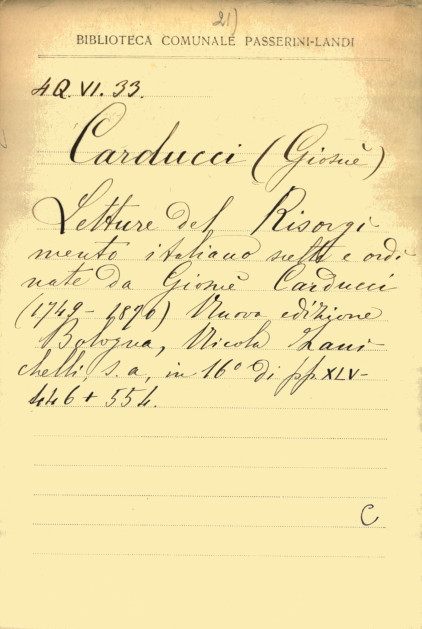 21)
BIBLIOTECA COMUNALE PASSERINI-LANDI
4Q.VI.33.
Carducci (Giosuè)
Letture del Risorgi
mento italiano scelte e ordi
nate da Giosuè Carducci
(1749-1870) Nuova edizione
Bologna, Nicola Zani-
chelli, s.a., in 16° di pp. XLV-
446 + 554.
C